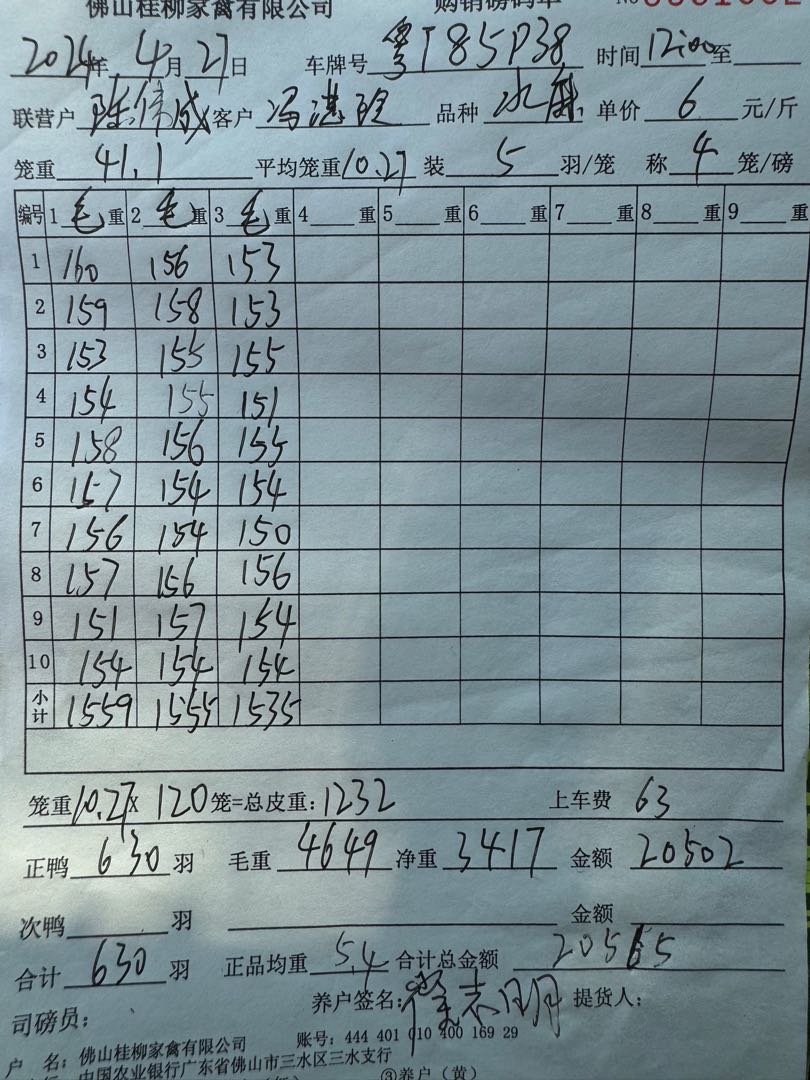 佛山桂柳家禽有限公司 购销磅码单 No
2024年 4月27日 车牌号 粤T85P38 时间12:00至
联营户 陈伟成 客户 品种 单价 6 元/斤
笼重 41.1 平均笼重10.27 装 5 羽/笼 称 4 笼/磅
编号 1 毛 重 2 毛 重 3 毛 重 4 重 5 重 6 重 7 重 8 重 9 重
1 160 156 153
2 159 158 153
3 153 155 155
4 154 155 151
5 158 156 155
6 157 154 154
7 156 154 150
8 157 156 156
9 151 157 154
10 154 154 154
小计 1559 1555 1535
笼重10.27X 120笼=总皮重:1232 上车费 63
正鸭 630 羽 毛重 4649 净重 3417 金额 20502
次鸭 羽 金额
合计 630 羽 正品均重 5.4 合计总金额 20565
养户签名: 志明 提货人:
司磅员:
户 名: 佛山桂柳家禽有限公司 账号: 444 401 010 400 169 29
中国农业银行广东省佛山市三水区三水支行
③养户(黄)